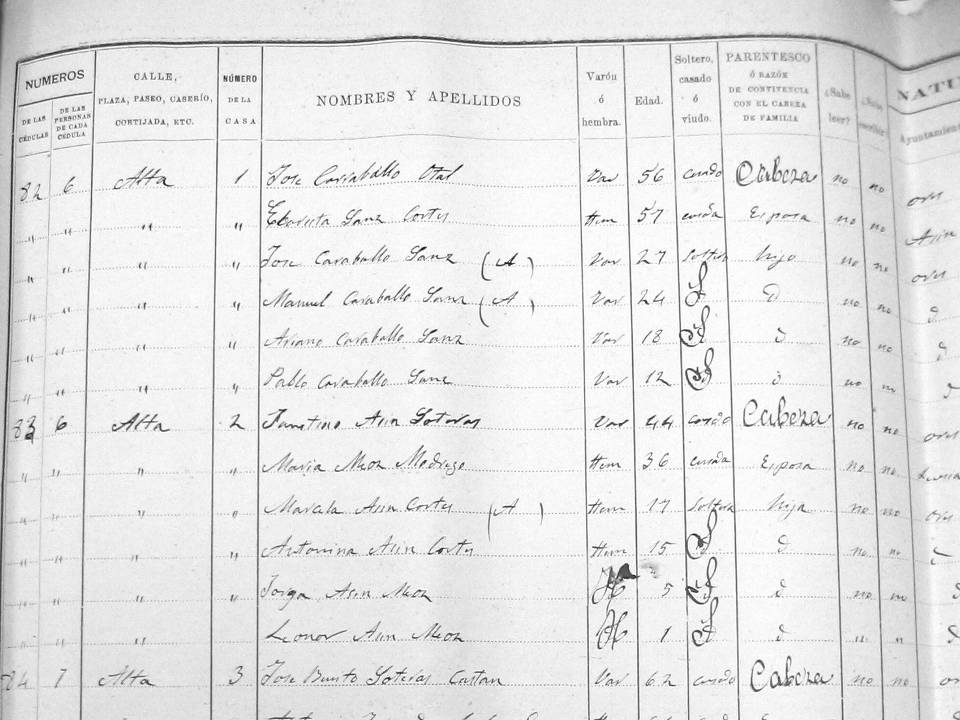 NUMEROS
DE LAS CÉDULAS
DE LAS PERSONAS DE CADA CÉDULA
CALLE, PLAZA, PASEO, CASERÍO, CORTIJADA, ETC.
NÚMERO DE LA CASA
NOMBRES Y APELLIDOS
Varón ó hembra.
Edad.
Soltero, casado ó viudo.
PARENTESCO Ó RAZÓN DE CONVIVENCIA CON EL CABEZA DE FAMILIA
¿Sabe leer?
¿Sabe escribir?
NATU
Ayuntamient
82 6 Alta 1 Jose Carraballo Otal Var 56 casado Cabeza no no
" " " " Sanz Cortes Hem 57 casada Esposa no no
" " " " Jose Caraballo Sanz (A) Var 27 Soltero hijo no no
" " " " Manuel Caraballo Sanz (A) Var 24 d no no d
" " " " Caraballo Sanz Var 18 d no no d
" " " " Pablo Caraballo Sanz Var 12 d no no d
83 6 Alta 2 Faustino Asin Soteras Var 44 casado Cabeza no no
" " " " Maria Meoz Hem 36 casada Esposa no no
" " " " Marcela Asin Cortes (A) Hem 17 Soltera hija no no
" " " " Antonina Asin Cortes Hem 15 d no no
" " " " Jorga Asin Meoz H 5 d no no d
" " " Leonor Asin Meoz H 1 d " " d
84 7 Alta 3 Jose Benito Soteras Castan Var 62 casado Cabeza no no